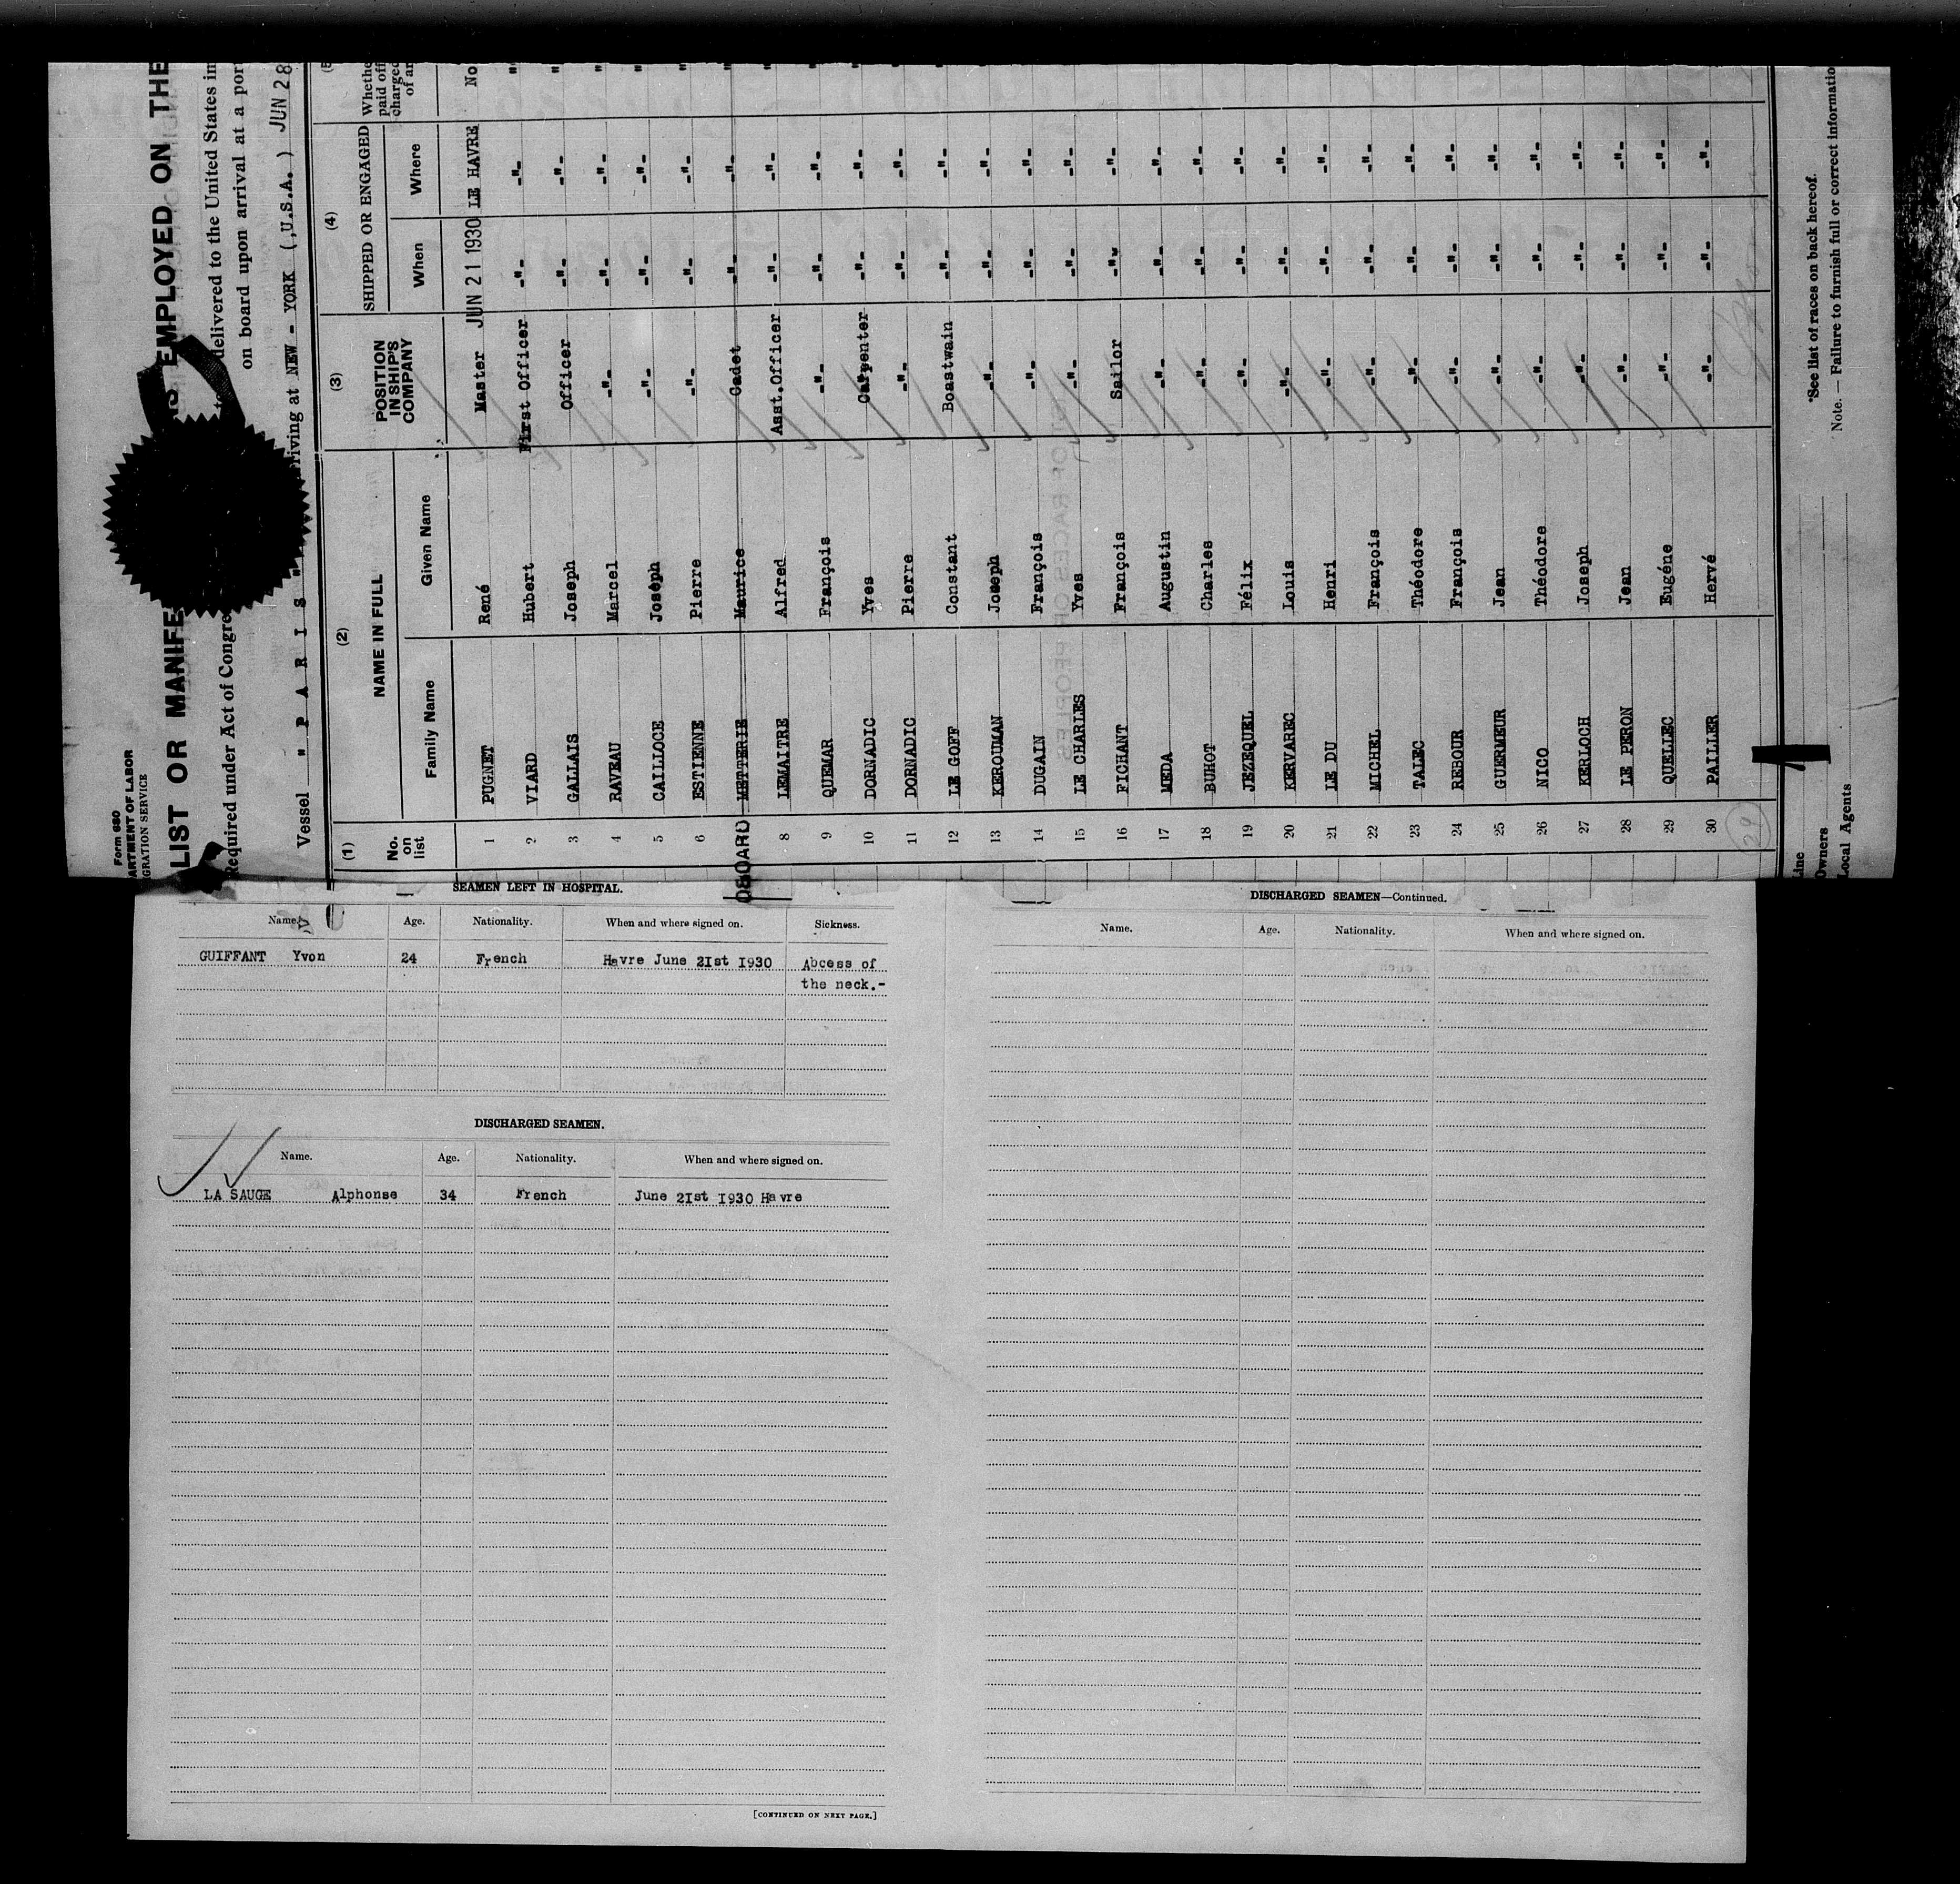 Form 680
ARTMENT OF LABOR
IGRATION SERVICE
LIST OR MANIFE AS EMPLOYED ON THE
Required under Act of Congre to delivered to the United States im
on board upon arrival at a por
Vessel " P A R I S " riving at NEW - YORK (,U.S.A. ) JUN 28
(1) (2) (3) (4) (5
No. on list NAME IN FULL POSITION IN SHIP'S COMPANY SHIPPED OR ENGAGED Whethe paid off charged of ar
Family Name Given Name When Where
1 PUGNET René Master JUN 21 1930 LE HAVRE No
2 VIARD Hubert First Officer -"- -"- "
3 GALLAIS Joseph Officer -"- -"- "
4 RAVEAU Marcel -"- -"- -"- "
5 CAILLOCE Joseph -"- -"- -"- "
6 ESTIENNE Pierre -"- -"- -"- "
OBOARD METTERIE Maurice Cadet -"- -"- "
8 LEMAITRE Alfred Asst.Officer -"- -"- "
9 QUEMAR François -"- -"- -"- "
10 DORNADIC Yves Carpenter -"- -"- "
11 DORNADIC Pierre -"- -"- -"- "
12 LE GOFF Constant Boastwain -"- -"- "
13 KEROUMAN Joseph -"- -"- -"- "
14 DUGAIN François -"- -"- -"- "
15 LE CHARLES Yves -"- -"- -"- "
16 FICHANT François Sailor -"- -"- "
17 MEDA Augustin -"- -"- -"- "
18 BUHOT Charles -"- -"- -"- "
19 JEZEQUEL Félix -"- -"- -"- "
20 KERVAREC Louis -"- -"- -"- "
21 LE DU Henri -"- -"- -"- "
22 MICHEL François -"- -"- -"- "
23 TALEC Théodore -"- -"- -"- "
24 REBOUR François -"- -"- -"- "
25 GUERMEUR Jean -"- -"- -"- "
26 NICO Théodore -"- -"- -"- "
27 KERLOCH Joseph -"- -"- -"- "
28 LE PERON Jean -"- -"- -"- "
29 QUELLEC Eugéne -"- -"- -"- "
30 PAILLER Hervé -"- -"- -"- "
29
Line
Owners
Local Agents
*See list of races on back hereof.
Note. — Failure to furnish full or correct informatio
SEAMEN LEFT IN HOSPITAL.
Name. Age. Nationality. When and where signed on. Sickness.
GUIFFANT Yvon 24 French Havre June 2Ist I930 Abcess of
the neck.-
DISCHARGED SEAMEN.
Name. Age. Nationality. When and where signed on.
LA SAUGE Alphonse 34 French June 2Ist I930 Havre
[CONTINUED ON NEXT PAGE.]
DISCHARGED SEAMEN—Continued.
Name. Age. Nationality. When and where signed on.